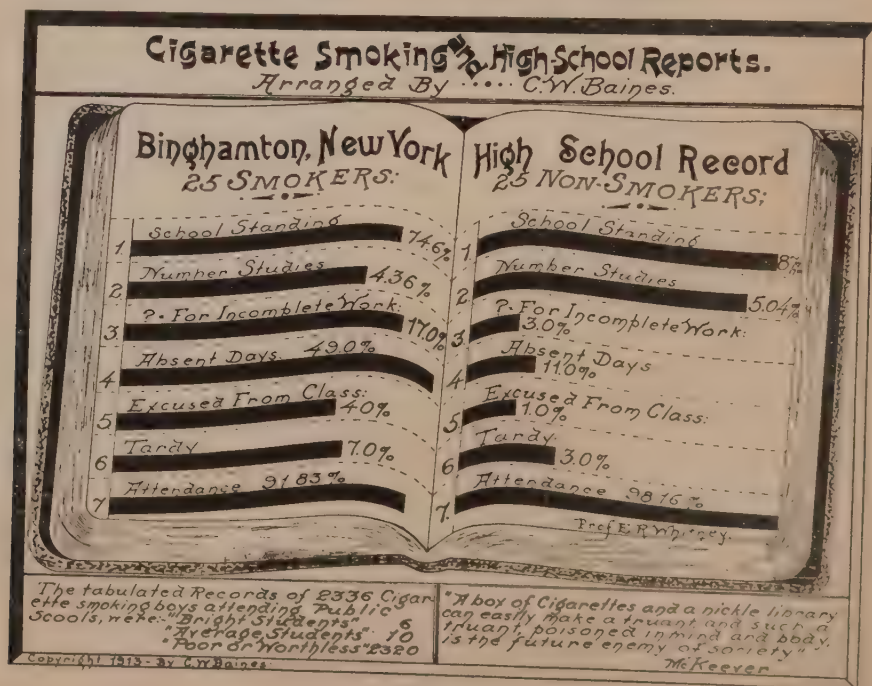 Cigarette Smoking and High-School Reports.
Arranged By ..... C.W. Baines.
Binghamton, New York
25 SMOKERS:
1. School Standing 74.6%
2. Number Studies 4.36%
3. ?. For Incomplete Work: 17.0%
4. Absent Days 49.0%
5. Excused From Class: 4.0%
6. Tardy 7.0%
7. Attendance 91.83%
High School Record
25 NON-SMOKERS;
1. School Standing
2. Number Studies 5.04%
3. ?. For Incomplete Work: 3.0%
4. Absent Days 11.0%
5. Excused From Class: 1.0%
6. Tardy. 3.0%
7. Attendance 98.16%
Prof E.R. Whitney.
The tabulated Records of 2336 Cigar-
ette smoking boys attending Public
Scools, were:- "Bright Students" 6
"Average Students" 10
"Poor or Worthless" 2320
Copyright 1913 - By C.W. Baines.
"A box of Cigarettes and a nickle library
can easily make a truant, and such a
truant, poisoned in mind and body,
is the future enemy of society"
McKeever